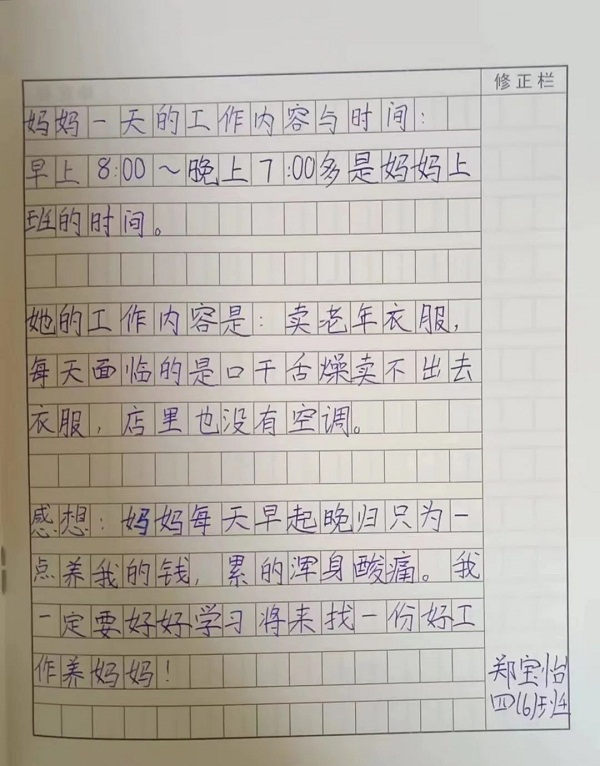 修正栏
妈妈一天的工作内容与时间：
早上8:00～晚上7:00多是妈妈上
班的时间。
她的工作内容是：卖老年衣服，
每天面临的是口干舌燥卖不出去
衣服，店里也没有空调。
感想：妈妈每天早起晚归只为一
点养我的钱，累的浑身酸痛。我
一定要好好学习将来找一份好工
作养妈妈！
郑宝怡
四(6)班